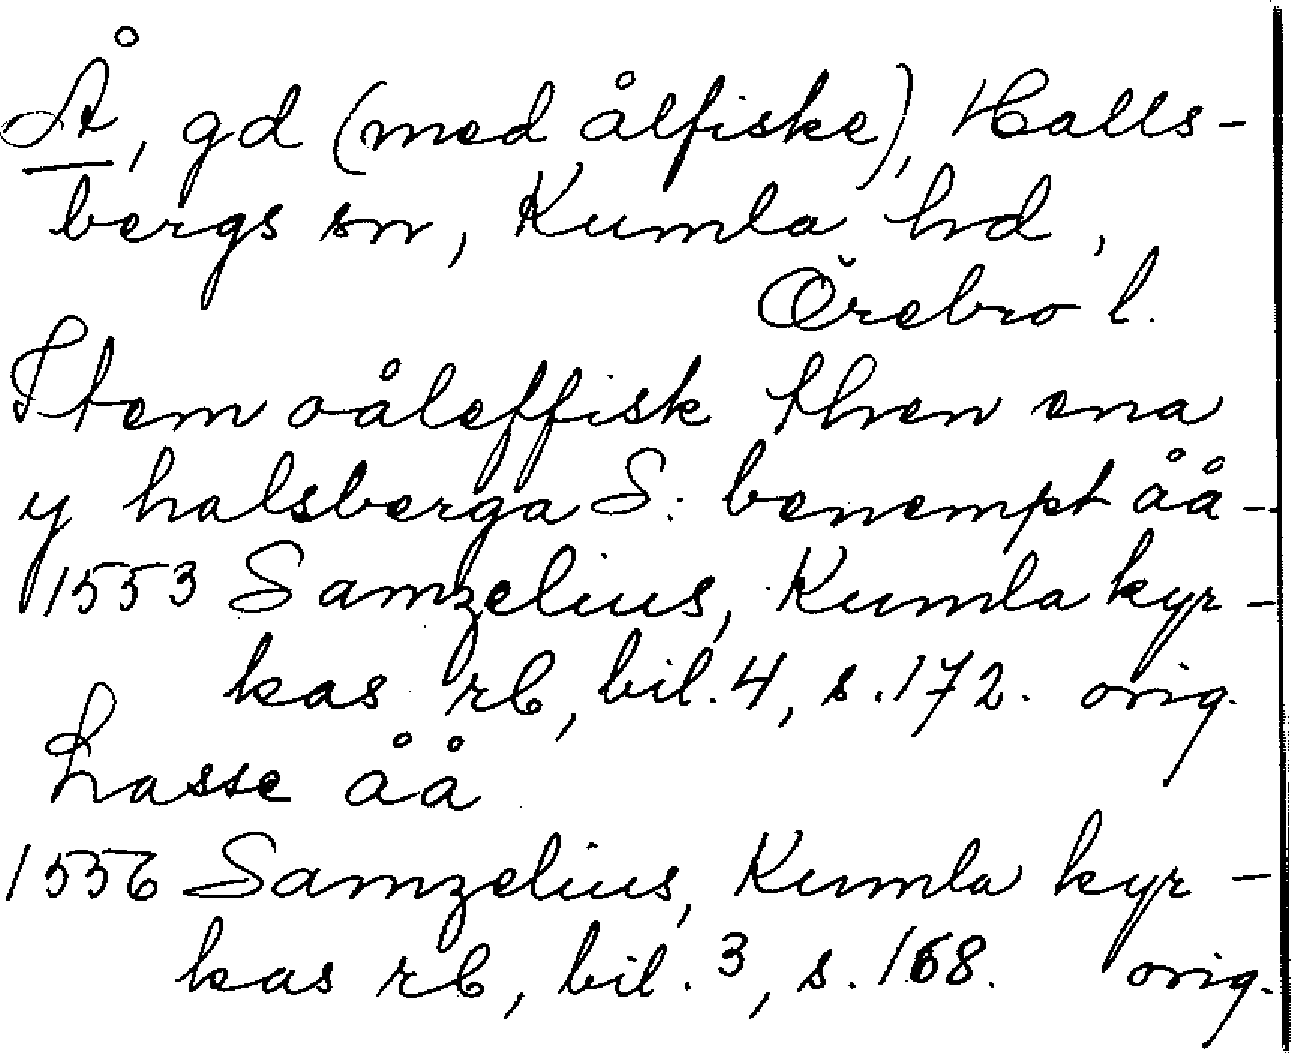 Å, gd (med ålfiske), Halls-
bergs sn, Kumla hd,
Örebro l.
Item oåleffisk then ena
y halsberga S: benempt åå-
1553 Samzelius, Kumla kyr-
kas rb, bil. 4, s. 172. orig.
Lasse åå
1556 Samzelius, Kumla kyr-
kas rb, bil. 3, s. 168. orig.